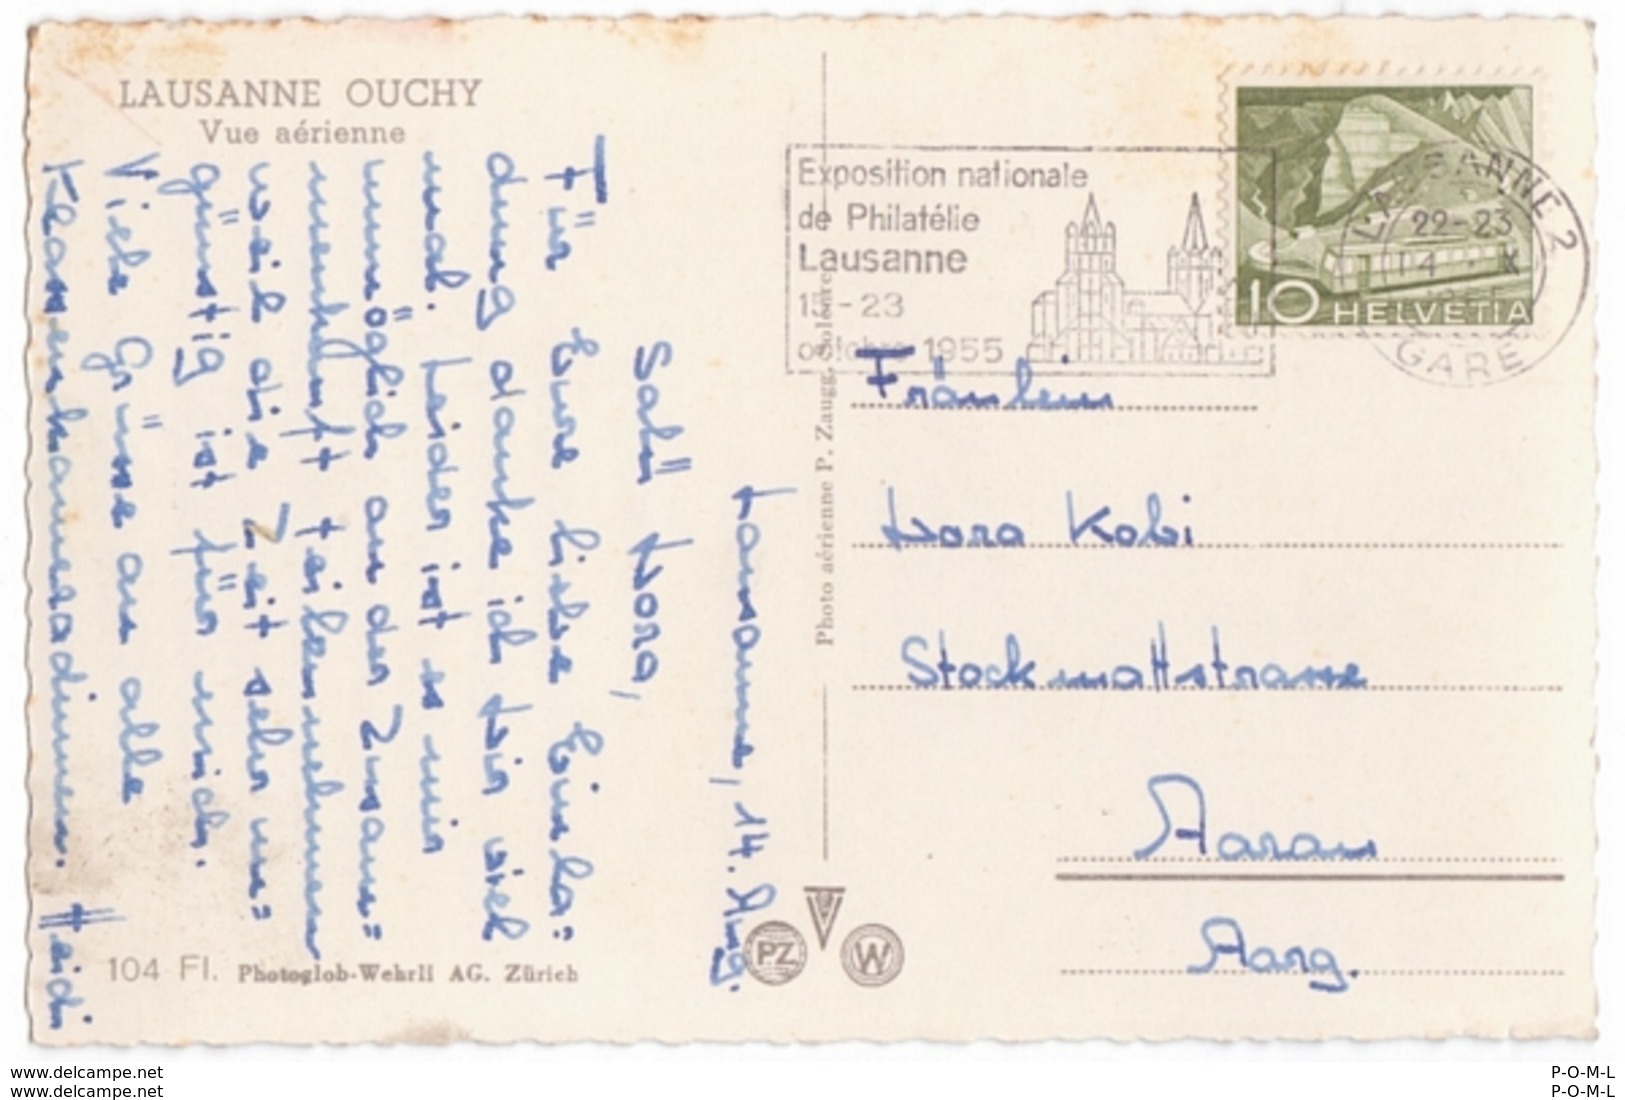 LAUSANNE OUCHY
Vue aérienne
Lausanne, 14. Aug.
Salü Nora,
Für Eure liebe Einla=
dung danke ich Dir viel
mal. Leider ist es mir
unmöglich an der Zusam=
menkunft teilzunehmen
weil die Zeit sehr un=
günstig ist für mich.
Viele Grüsse an alle
Klassenkameradinnen. Heidi
104 Fl. Photoglob-Wehrli AG. Zürich
Photo aérienne P. Zaugg, Soleure
PZ
W
Exposition nationale
de Philatélie
Lausanne
1 -23
octobre 1955
LAUSANNE 2
22-23
GARE
10 HELVETIA
Fräulein
Nora Kobi
Stockmattstrasse
Aarau
Aarg.
www.delcampe.net
www.delcampe.net
P-O-M-L
P-O-M-L